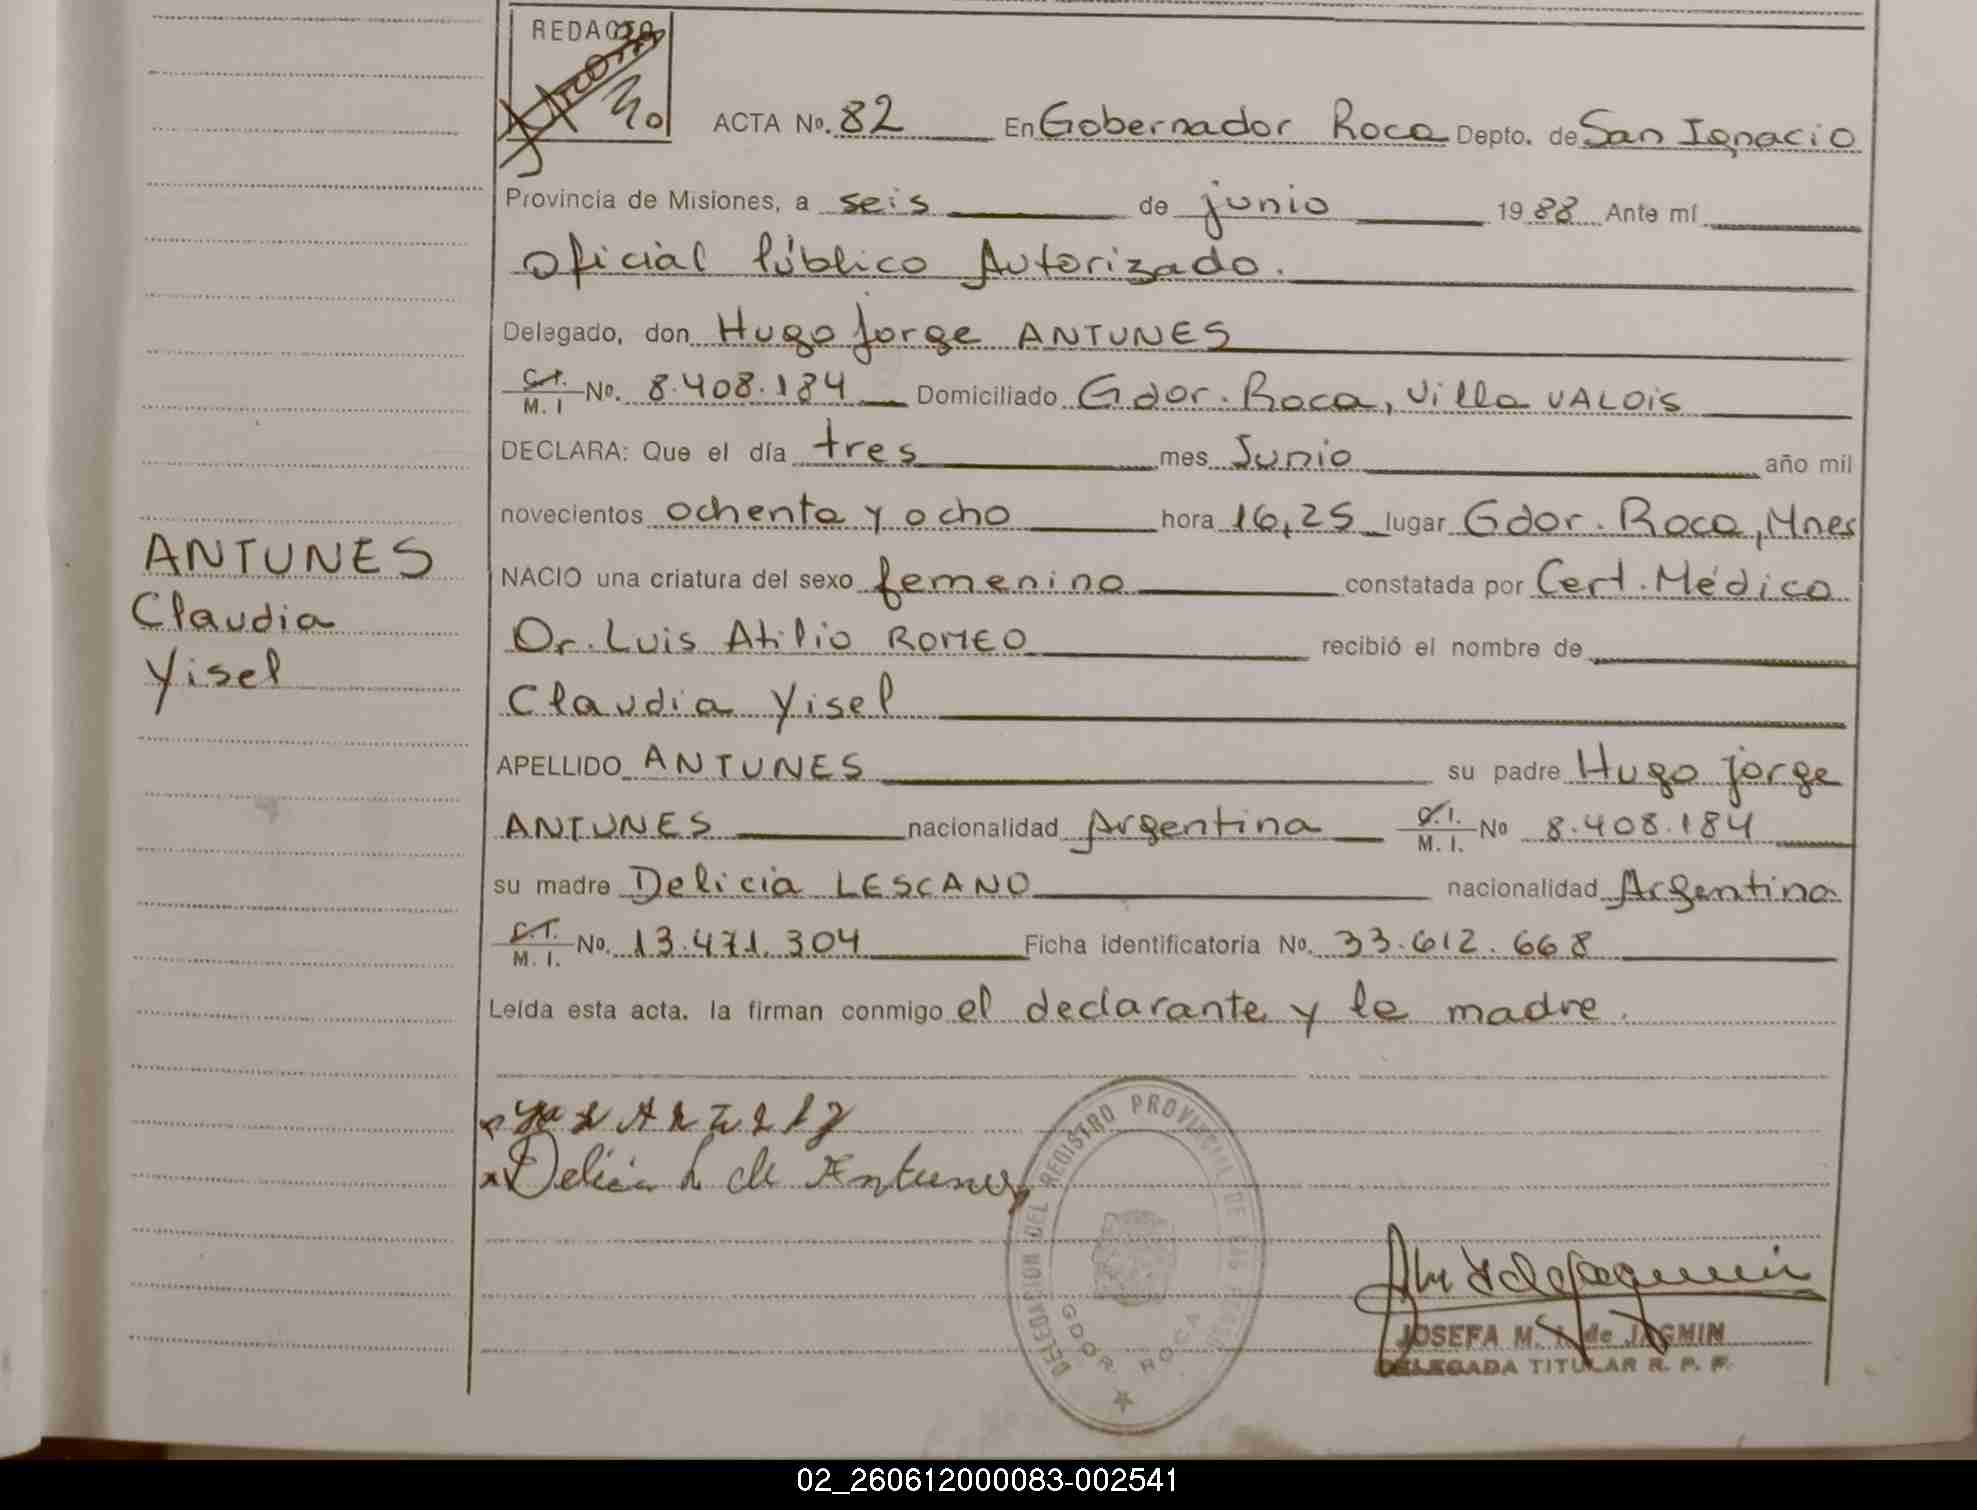 REDACTO
ACTA Nº. 82 En Gobernador Roca Depto. de San Ignacio
Provincia de Misiones, a seis de junio 1988 Ante mí
Oficial Público Autorizado.
Delegado, don Hugo Jorge ANTUNES
C.I. M. I Nº. 8.408.184 Domiciliado Gdor. Roca, Villa VALOIS
DECLARA: Que el día tres mes Junio año mil
novecientos ochenta y ocho hora 16,25 lugar Gdor. Roca, Mnes
NACIO una criatura del sexo femenino constatada por Cert. Médico
Dr. Luis Atilio ROMEO recibió el nombre de
Claudia Yisel
APELLIDO ANTUNES su padre Hugo Jorge
ANTUNES nacionalidad Argentina C.I. M. I. Nº 8.408.184
su madre Delicia LESCANO nacionalidad Argentina
C.I. M. I. Nº. 13.471.304 Ficha identificatoria Nº. 33.612.668
Leída esta acta, la firman conmigo el declarante y la madre.
ANTUNES
Claudia
Yisel
Delicia L de Antunes
DELEGACION DEL REGISTRO PROVINCIAL DE LAS PERSONAS
GDOR. ROCA
JOSEFA M. de JAGMIN
DELEGADA TITULAR R. P. P.
02_260612000083-002541